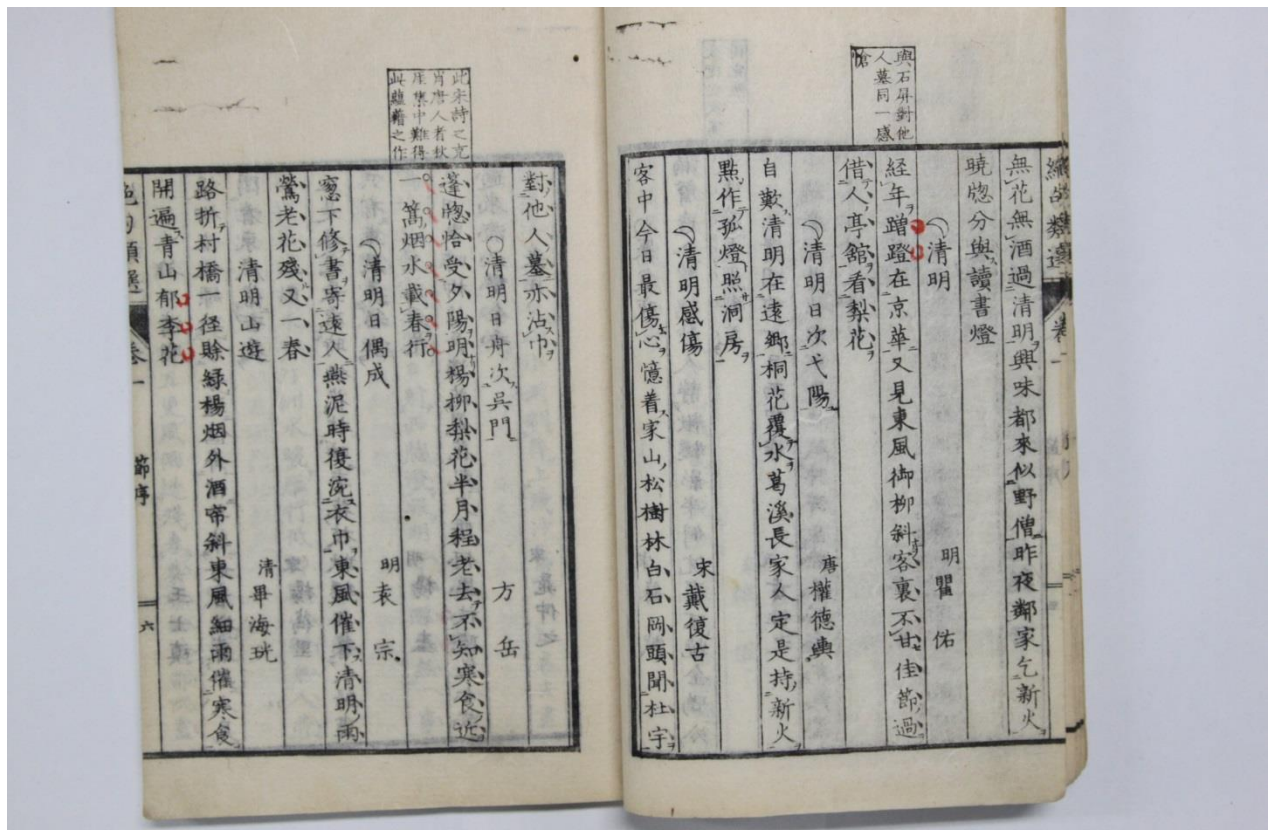 與石屏對他
人墓同一感
愴
無花無酒過清明興味都來似野僧昨夜鄰家乞新火
曉牕分與讀書燈
清明 明 瞿佑
経年蹭蹬在京華又見東風御柳斜客裏不甘佳節過
借人亭舘看梨花
清明日次弋陽 唐 權德輿
自歎清明在遠鄉桐花覆水葛溪長家人定是持新火
點作孤燈照洞房
清明感傷 宋 戴復古
客中今日最傷心憶着家山松樹林白石岡頭聞杜宇
此宋詩之克
肖唐人者秋
崖集中難得
此蘊藉之作
對他人墓亦沾巾
清明日舟次吳門 方岳
篷牕恰受夕陽明楊柳梨花半月程老去不知寒食近
一篙烟水載春行
清明日偶成 明 袁宗
窓下修書寄遠人燕泥時復涴衣巾東風催下清明雨
鶯老花殘又一春
清明山遊 清 畢海珖
路折村橋一径賖綠楊烟外酒帘斜東風細雨催寒食
開遍青山郁李花
卷一
節序
六